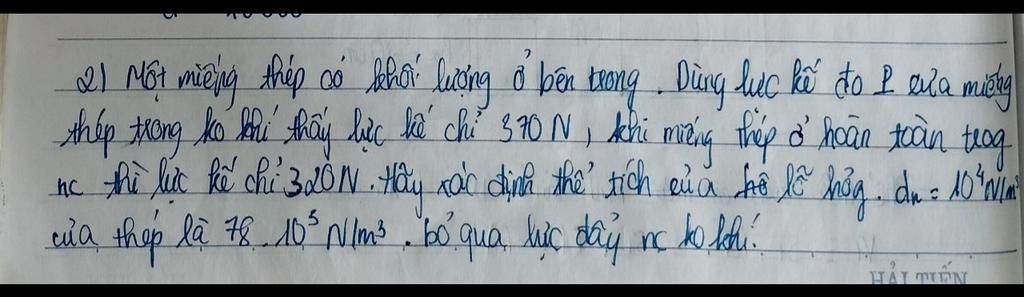 2) Một miếng thép có khối lượng ở bên trong. Dùng lực kế đo P của miếng
thép trong ko khí thấy lực kế chỉ 370 N, khi miếng thép ở hoàn toàn trog
nc thì lực kế chỉ 320N. Hãy xác định thể tích của lỗ hổg. dn = 10⁴N/m³
của thép là 78.10³ N/m³. bỏ qua lực đẩy nc ko khí.
HẢI TIẾN